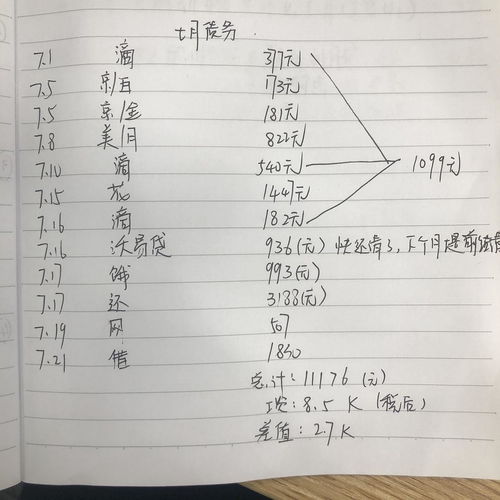 七月债务
7.1 滴 377元
7.5 京/白 173元
7.5 京/金 181元
7.8 美/月 822元
7.10 滴 540元 1099元
7.15 花 1447元
7.16 滴 182元
7.16 沃易贷 936(元) 快还清了,下个月提前结清
7.17 饿 993(元)
7.17 还 3188(元)
7.19 网 507
7.21 借 1830
总计:11176(元)
工资:8.5 K (税后)
差值:2.7 K